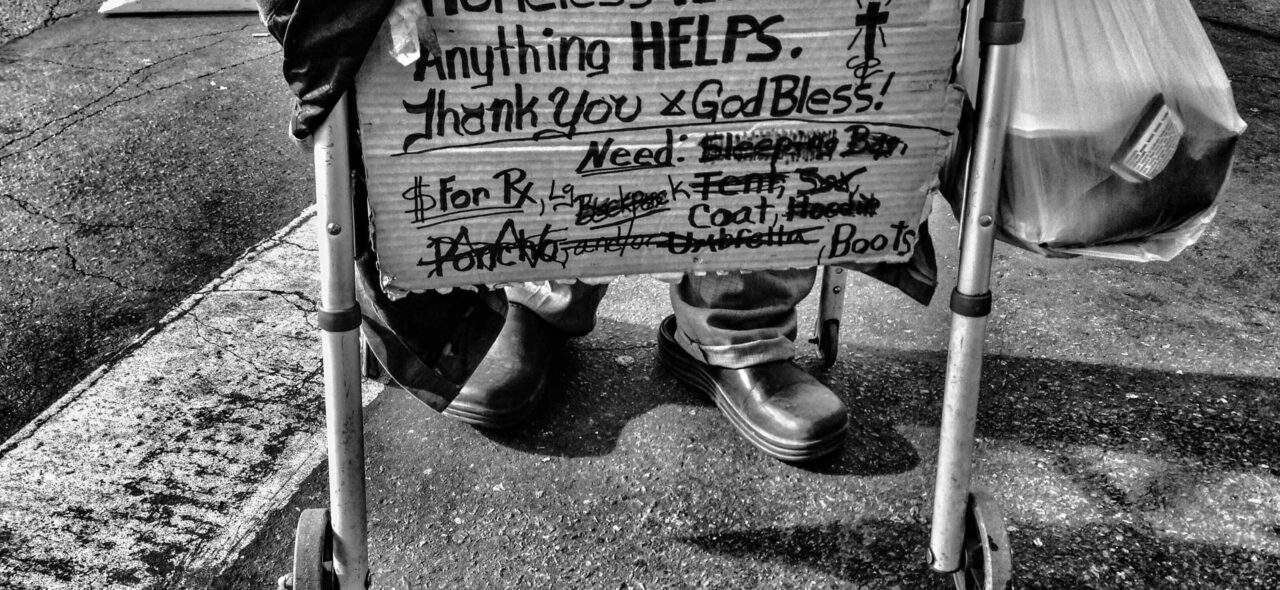 Homeless
Anything HELPS.
Thank You & God Bless!
Need: Sleeping Bag,
$ For Rx, Lg Backpack, Tent, Sox,
Coat, Hoodie
Poncho, and/or Umbrella, Boots